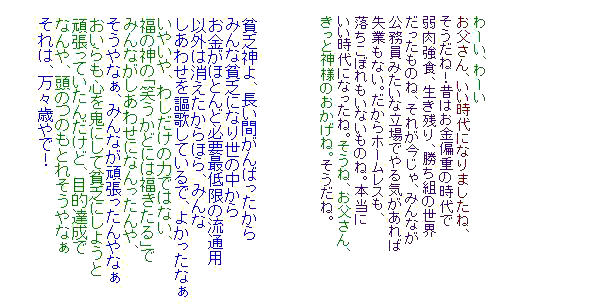 わーい、わーい
お父さん、いい時代になりましたね、
そうだね！昔はお金偏重の時代で
弱肉強食、生き残り、勝ち組の世界
だったものね、それが今じゃ、みんなが
公務員みたいな立場でやる気があれば
失業もない。だからホームレスも、
落ちこぼれもいないものね。本当に
いい時代になったね。そうね、お父さん、
きっと神様のおかげね。そうだね。
貧乏神よ、長い間がんばったから
みんな貧乏になり世の中から
お金がほとんど必要最低限の流通用
以外は消えたからほら、みんな
しあわせを謳歌しているで、よかったなぁ
いやいや、わしだけの力ではない、
福の神の「笑うかどには福きたる」で
みんながしあわせになんったんや、
そうやなぁ、みんなが頑張ったんやなぁ
おいらも心を鬼にして貧乏にしようと
頑張っていたんだけど、目的達成で
なんや、頭のつのもとれそうやなぁ
それは、万々歳やで！